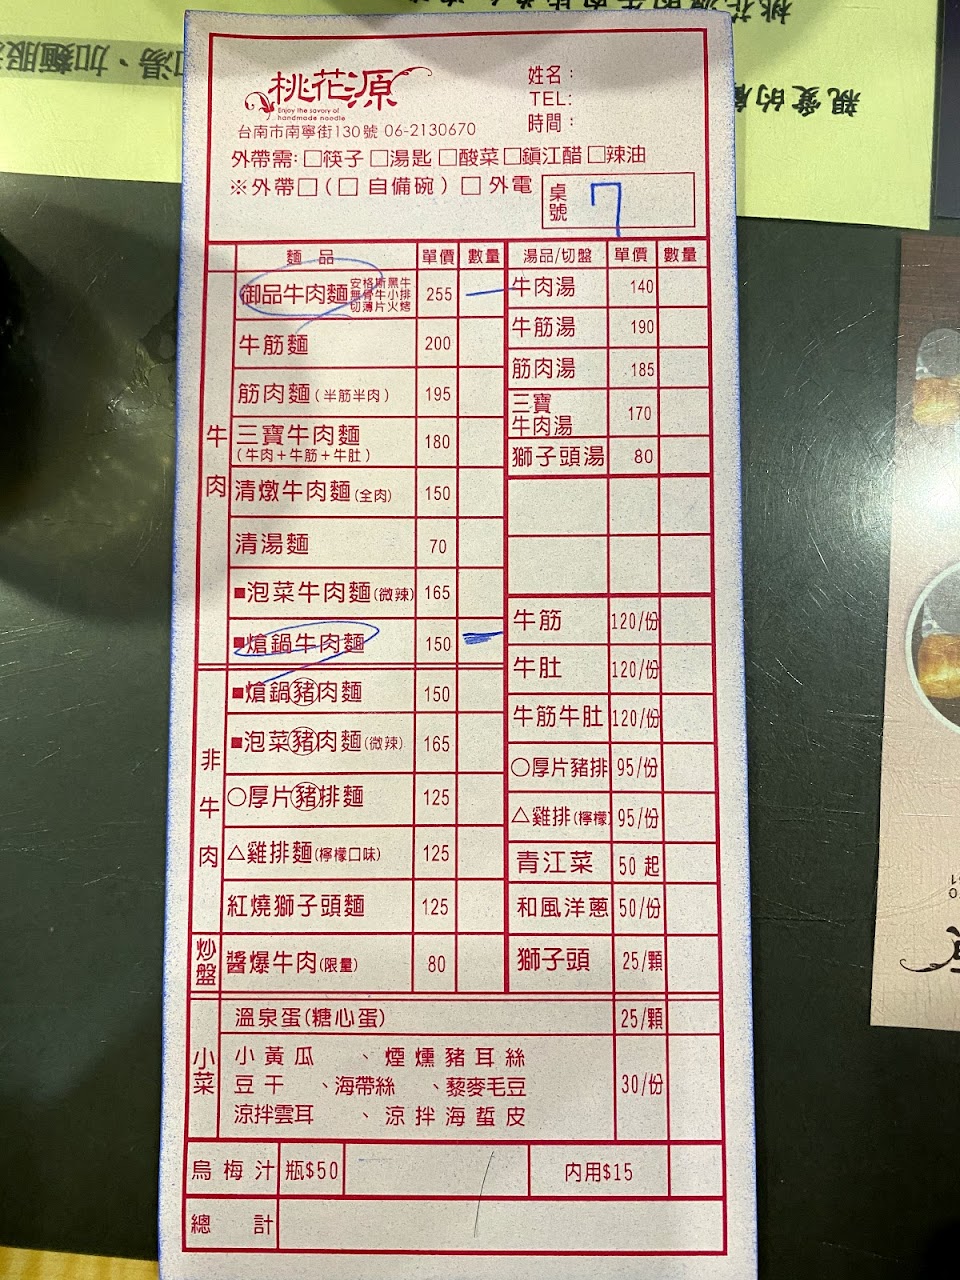 桃花源
Enjoy the savory of
handmade noodle
台南市南寧街130號 06-2130670
姓名：
TEL：
時間：
外帶需：□筷子 □湯匙 □酸菜 □鎮江醋 □辣油
※外帶□（□ 自備碗）□ 外電
桌號 7
麵品 單價 數量
牛肉
御品牛肉麵 安格斯黑牛 無骨牛小排 切薄片火烤 255 一
牛筋麵 200
筋肉麵（半筋半肉） 195
三寶牛肉麵（牛肉＋牛筋＋牛肚） 180
清燉牛肉麵(全肉) 150
清湯麵 70
■泡菜牛肉麵(微辣) 165
■熗鍋牛肉麵 150 一
非牛肉
■熗鍋豬肉麵 150
■泡菜豬肉麵(微辣) 165
○厚片豬排麵 125
△雞排麵(檸檬口味) 125
紅燒獅子頭麵 125
炒盤
醬爆牛肉(限量) 80
湯品/切盤 單價 數量
牛肉湯 140
牛筋湯 190
筋肉湯 185
三寶牛肉湯 170
獅子頭湯 80
牛筋 120/份
牛肚 120/份
牛筋牛肚 120/份
○厚片豬排 95/份
△雞排(檸檬) 95/份
青江菜 50 起
和風洋蔥 50/份
獅子頭 25/顆
小菜
溫泉蛋(糖心蛋) 25/顆
小黃瓜 、煙燻豬耳絲
豆干 、海帶絲 、藜麥毛豆 30/份
涼拌雲耳 、涼拌海蜇皮
烏梅汁 瓶$50 內用$15
總計